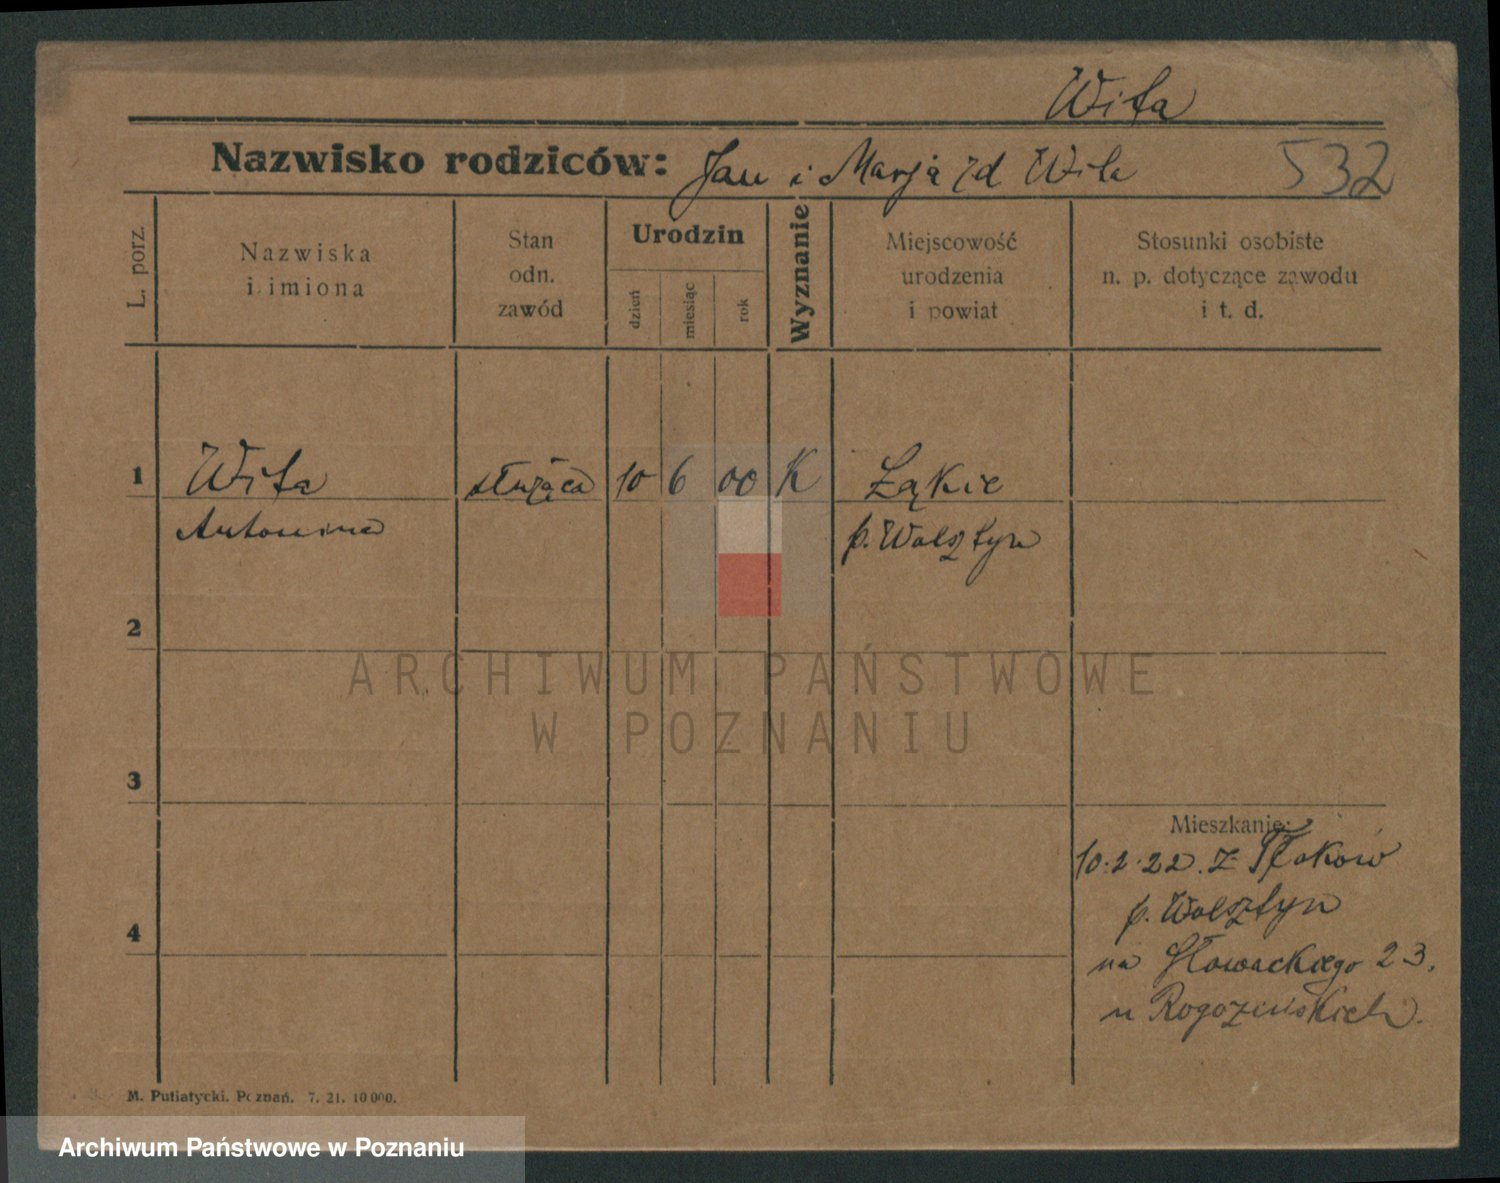 Wita
Nazwisko rodziców: Jan i Marja zd Wita 532
L. porz.
Nazwiska
i imiona
Stan
odn.
zawód
Urodzin
dzień
miesiąc
rok
Wyznanie
Miejscowość
urodzenia
i powiat
Stosunki osobiste
n. p. dotyczące zawodu
i t. d.
1 Wita służąca 10 6 00 K Łąkie
Antonina p. Wolsztyn
2
3
Mieszkanie:
10.2.22. z Tłoków
p. Wolsztyn
4
na Słowackiego 23.
u Rogozińskich.
M. Putiatycki. Poznań. 7. 21. 10 000.
ARCHIWUM PAŃSTWOWE
W POZNANIU
Archiwum Państwowe w Poznaniu